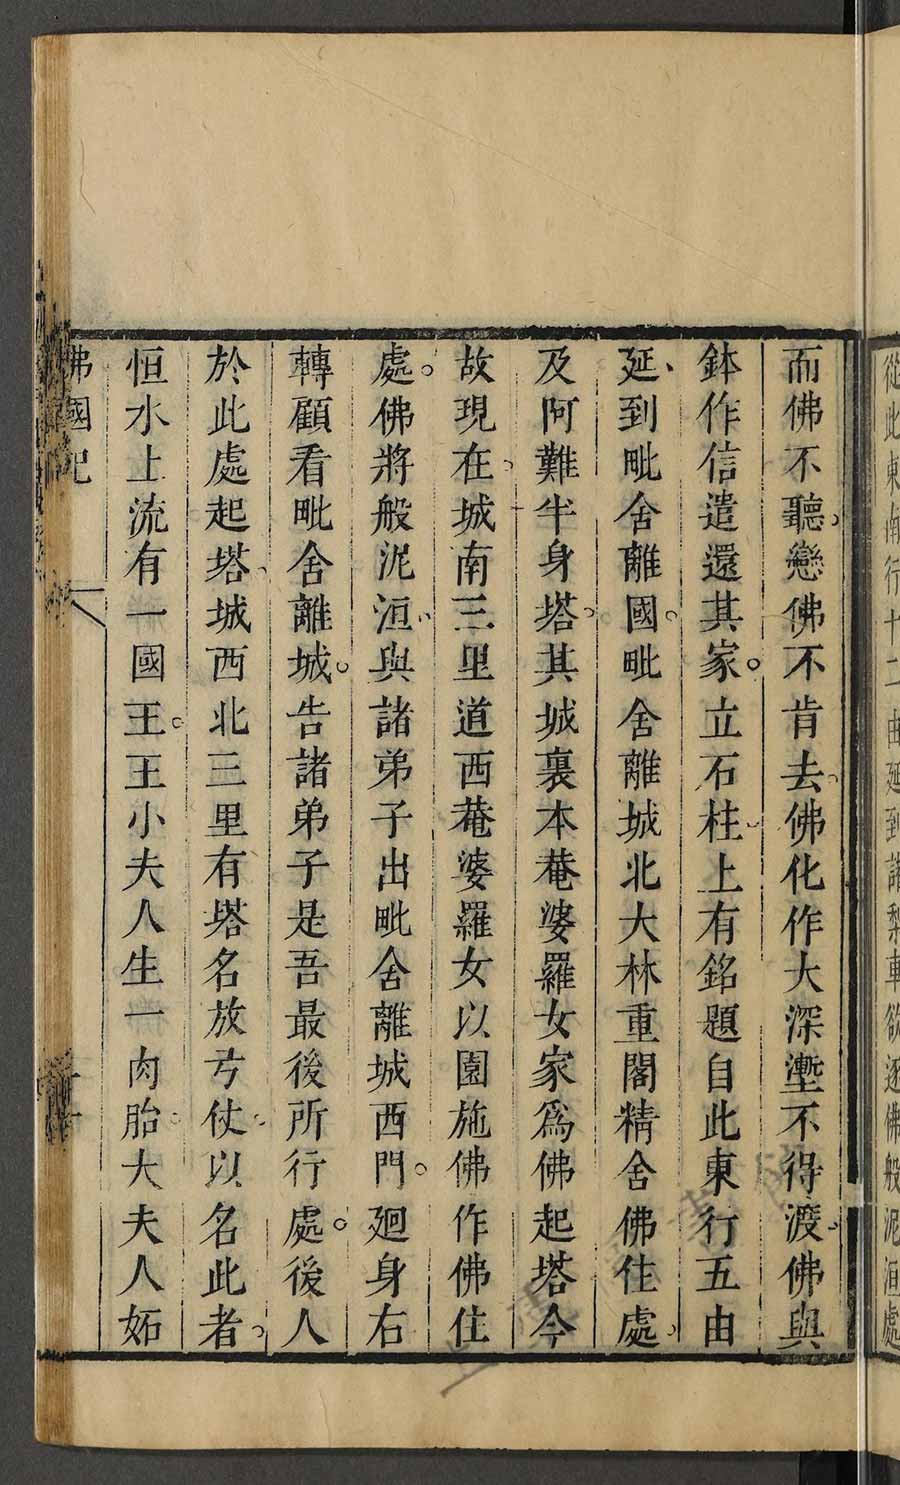 從此東南行十二由延到諸梨車欲逐佛般泥洹處
而佛不聽戀佛不肯去佛化作大深壍不得渡佛與
鉢作信遣還其家立石柱上有銘題自此東行五由
延到毗舍離國毗舍離城北大林重閣精舍佛住處
及阿難半身塔其城裏本菴婆羅女家爲佛起塔今
故現在城南三里道西菴婆羅女以園施佛作佛住
處佛將般泥洹與諸弟子出毗舍離城西門廻身右
轉顧看毗舍離城告諸弟子是吾最後所行處後人
於此處起塔城西北三里有塔名放弓仗以名此者
恒水上流有一國王王小夫人生一肉胎大夫人妬
佛國記